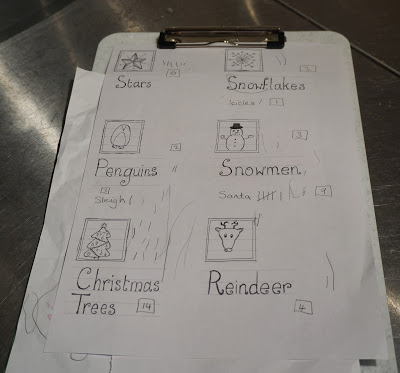 Stars
2
Snowflakes
Icicles 1
2
Penguins
3
Snowmen
Sleigh
Santa 9
Christmas
Trees 14
Reindeer
4